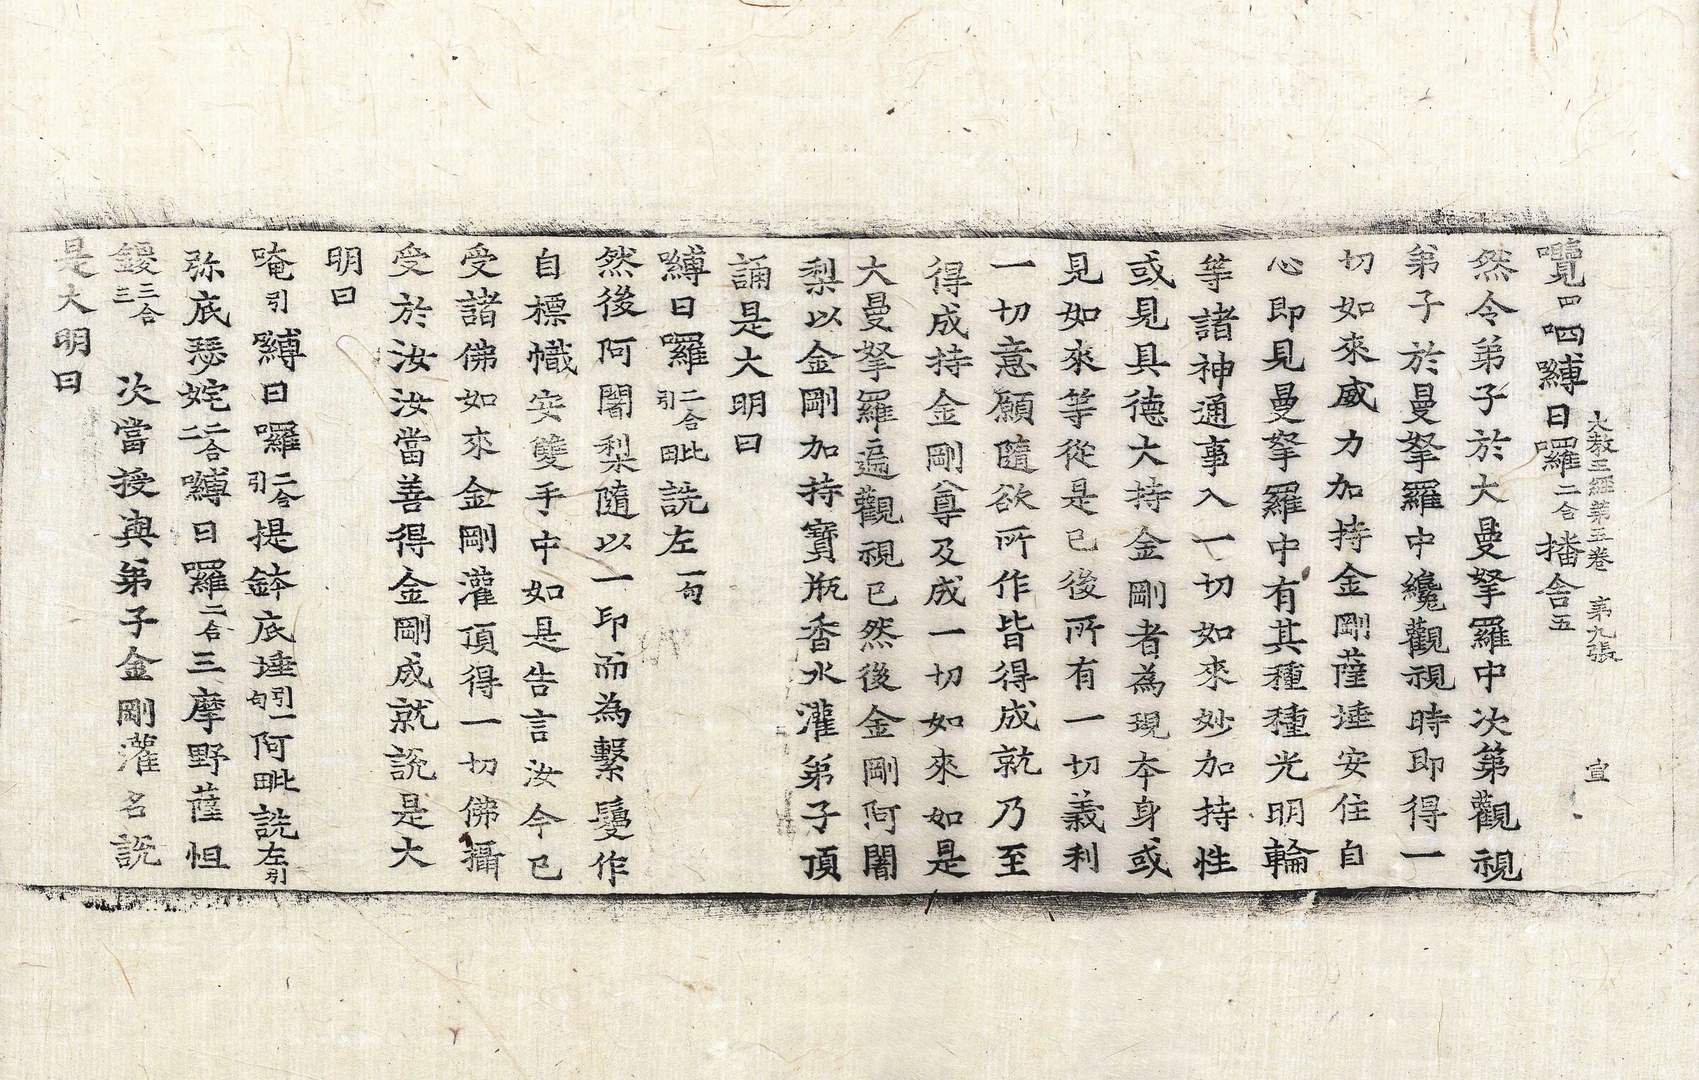 大教王經第五卷　第九張　宣
𡃤四呬縛日囉二合播舍五
然令弟子於大曼拏羅中次第觀視
弟子於曼拏羅中纔觀視時即得一
切如來威力加持金剛薩埵安住自
心即見曼拏羅中有其種種光明輪
等諸神通事入一切如來妙加持性
或見具德大持金剛者為現本身或
見如來等從是已後所有一切義利
一切意願隨欲所作皆得成就乃至
得成持金剛尊及成一切如來如是
大曼拏羅遍觀視已然後金剛阿闍
梨以金剛加持寶瓶香水灌弟子頂
誦是大明曰
嚩日囉二合引毗詵左一句
然後阿闍梨隨以一印而為繫鬘作
自標幟安雙手中如是告言汝今已
受諸佛如來金剛灌頂得一切佛攝
受於汝汝當善得金剛成就說是大
明曰
唵引嚩日囉二合引提鉢底埵引一句阿毗詵左引
弥底瑟姹二合二嚩日囉二合三摩野薩怛
鑁二合三　次當授與弟子金剛灌名說
是大明曰